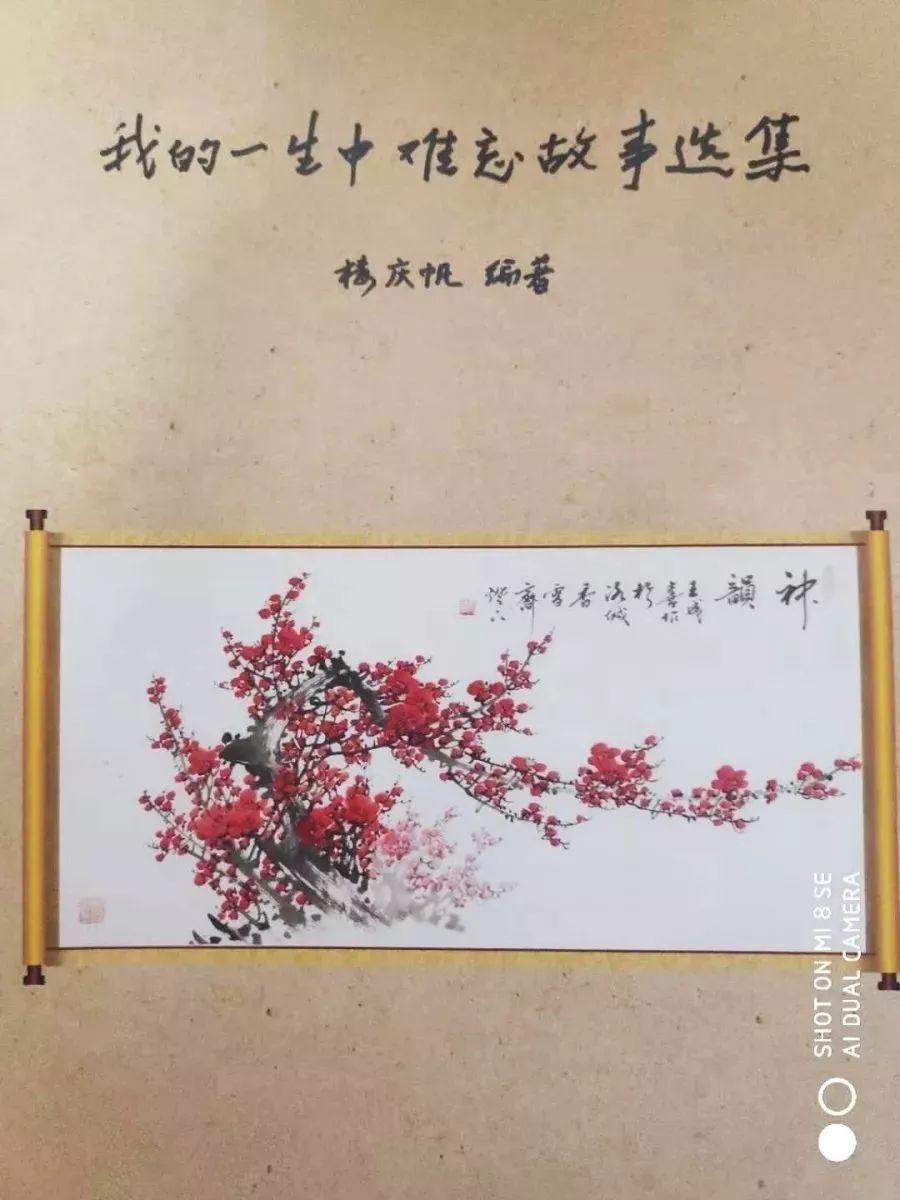 我的一生中难忘故事选集
楼庆帆 编著
神
韻
喜作
於
洛城
香雪
齋
SHOT ON MI 8 SE
AI DUAL CAMERA